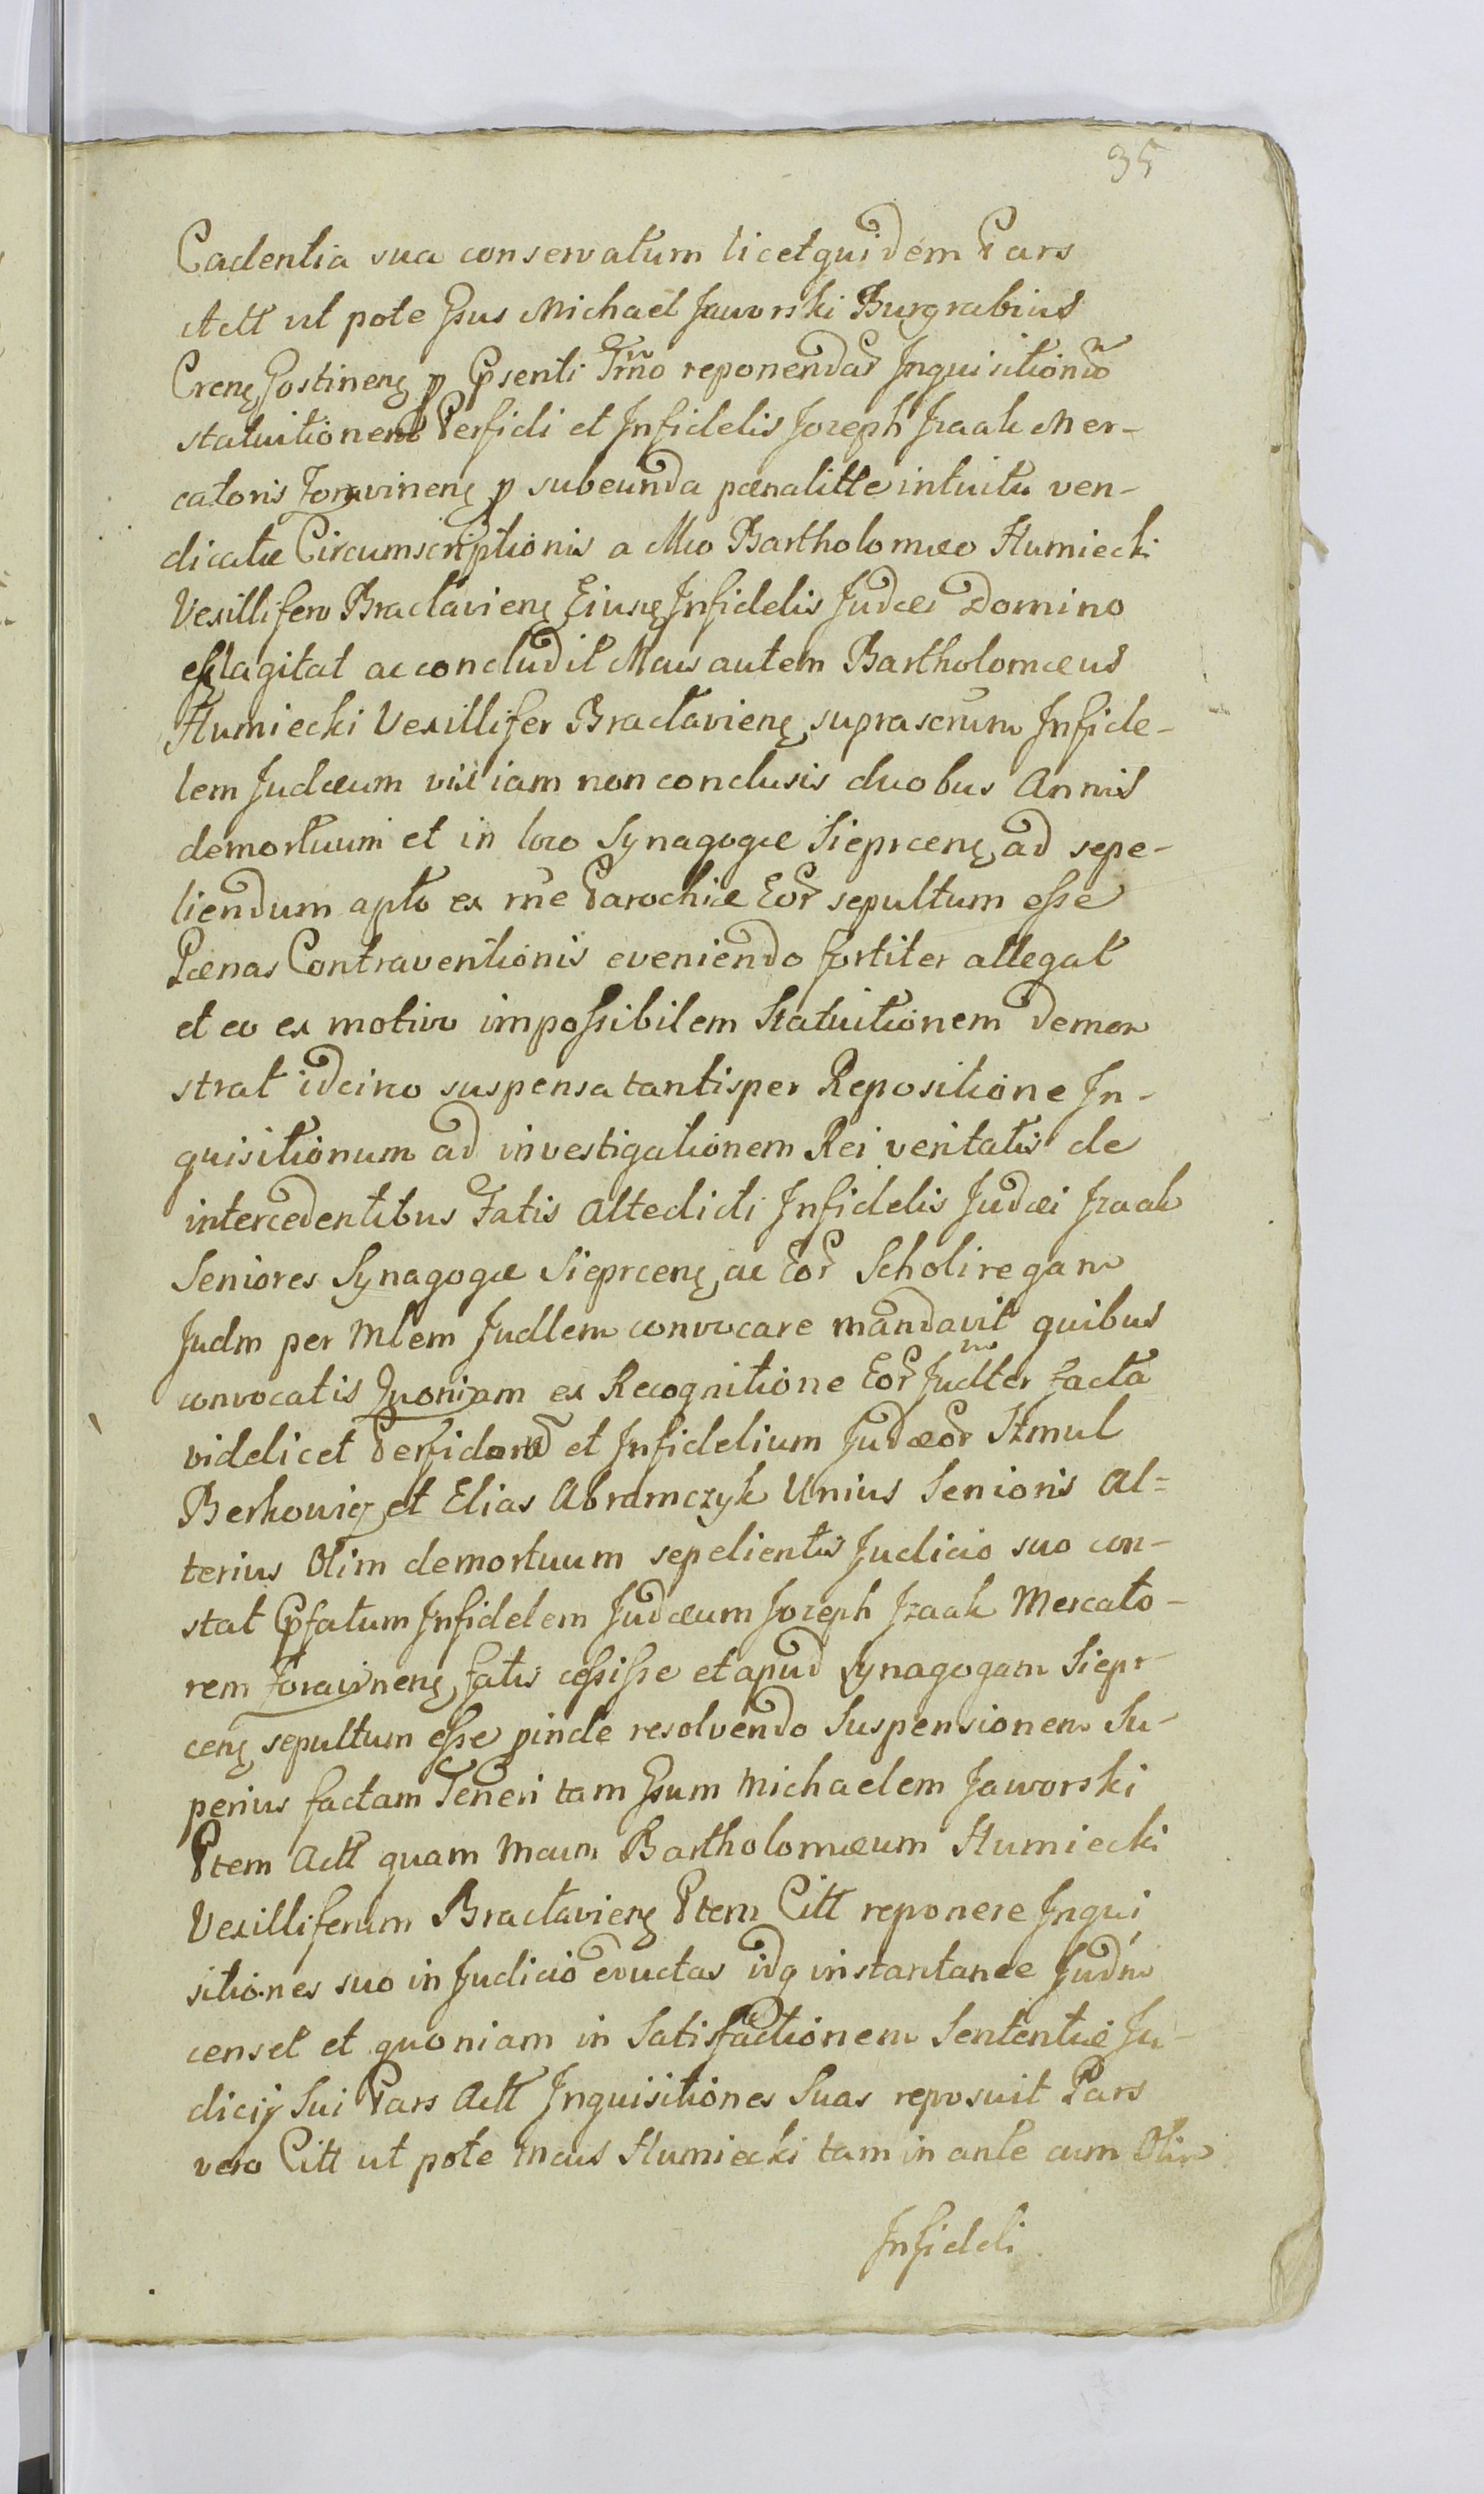 35
Cadentia sua conservatum licet quidem Pars
Actt ut pote Gsus Michael Jaworski Burgrabius
Crenȩ Gostinenȩ p Cpsenti Trno reponendar Inquisitionu
statuitionem Perfidi et Infidelis Jozeph Izaak Mer-
catoris p subeunda pœnalitte intuitu ven-
dicatæ Circumscriptionis a Mco Bartholomæo Humiecki
Vexillifero Braclavienȩ Eiusȩ Infidelis Judæi Domino
efflagitat ac concludit Mcus autem Bartholomæus
Humiecki Vexillifer Braclavienȩ suprascrum Infide-
lem Judæum vix iam non conclusis duobus Annis
demortuum et in loco Synagogæ Sieprcenȩ ad sepe-
liendum apto ex rne Parochiæ Eor sepultum esse
Pœnas Contraventionis eveniendo fortiter allegat
et eo ex motivo impossibilem Statuitionem demon
strat idcirco suspensa tantisper Repositione In-
quisitionum ad investigationem Rei veritatis de
intercedentibus Fatis Altedicti Infidelis Judæi Izaak
Seniores Synagogæ Sieprcenȩ ac Eor Scholiregam
Judm per Mlem Judlem convocare mandavit quibus
convocatis Quoniam ex Recognitione Eor Judlter facta
videlicet Perfidorum et Infidelium Judæor Szmul
Berkowicz et Elias Abramczyk Unius Senioris Al=
terius Olim demortuum sepelientis Judicio suo con-
stat Cpfatum Infidelem Judæum Jozeph Izaak Mercato-
rem fatis cessisse et apud Synagogam Siepr-
cenȩ sepultum esse pinde resolvendo Suspensionem Su-
perius factam Teneri tam Gsum Michaelem Jaworski
Ptem Actt quam Mcum Bartholomæum Humiecki
Vexilliferum Braclavienȩ Ptem Citt reponere Inqui
sitiones suo in Judicio eductas idq instantanee Judm
censet et quoniam in Satisfactionem Sententiæ Ju-
dicij Sui Pars Actt Inquisitiones Suas reposuit Pars
vero Citt ut pote Mcus Humiecki tam in ante cum Olim
Infideli